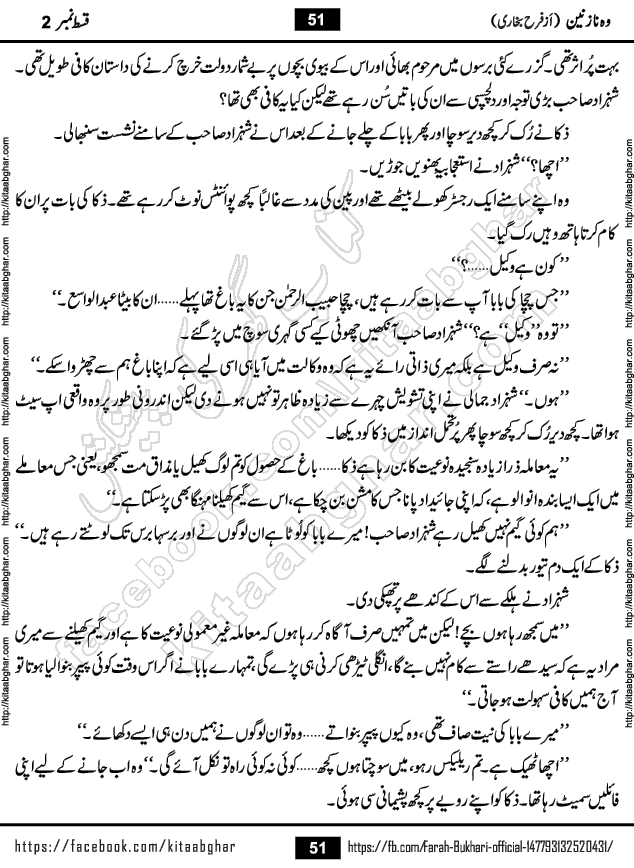 وہ نازنین (از فرح بخاری)
51
قسط نمبر 2
بہت پُر اثر تھی۔ گزرے کئی برسوں میں مرحوم بھائی اور اس کے بیوی بچوں پر بے شمار دولت خرچ کرنے کی داستان کافی طویل تھی۔
شہزاد صاحب بڑی توجہ اور دلچسپی سے ان کی باتیں سُن رہے تھے لیکن کیا یہ کافی بھی تھا؟
ذکا نے رُک کر کچھ دیر سوچا اور پھر بابا کے چلے جانے کے بعد اس نے شہزاد صاحب کے سامنے نشست سنبھالی۔
’’اچھا؟‘‘ شہزاد نے استعجابیہ بھنویں جوڑیں۔
وہ اپنے سامنے ایک رجسٹر کھولے بیٹھے تھے اور پین کی مدد سے غالباً کچھ پوائنٹس نوٹ کر رہے تھے۔ ذکا کی بات پر ان کا
کام کرتا ہاتھ وہیں رک گیا۔
’’کون ہے وکیل……؟‘‘
’’جس چچا کی بابا آپ سے بات کر رہے ہیں، چچا حبیب الرحمٰن جن کا یہ باغ تھا پہلے……ان کا بیٹا عبدالواسع۔‘‘
’’تو وہ ’’وکیل‘‘ ہے؟‘‘ شہزاد صاحب آنکھیں چھوٹی کیے کسی گہری سوچ میں پڑ گئے۔
’’نہ صرف وکیل ہے بلکہ میری ذاتی رائے یہ ہے کہ وہ وکالت میں آیا ہی اسی لیے ہے کہ اپنا باغ ہم سے چھڑوا سکے۔‘‘
’’ہوں۔‘‘ شہزاد جمالی نے اپنی تشویش چہرے سے زیادہ ظاہر تو نہیں ہونے دی لیکن اندرونی طور پر وہ واقعی اپ سیٹ
ہوا تھا۔ کچھ دیر رُک کر کچھ سوچا پھر پُر تحمل انداز میں ذکا کو دیکھا۔
’’یہ معاملہ ذرا زیادہ سنجیدہ نوعیت کا بن رہا ہے ذکا……باغ کے حصول کو تم لوگ کھیل یا مذاق مت سمجھو، یعنی جس معاملے
میں ایک ایسا بندہ انوالو ہے، کہ اپنی جائیداد پانا جس کا مشن بن چکا ہے، اس سے گیم کھیلنا مہنگا بھی پڑ سکتا ہے۔‘‘
’’ہم کوئی گیم نہیں کھیل رہے شہزاد صاحب! میرے بابا کو لُوٹا ہے ان لوگوں نے اور برسہا برس تک لوٹتے رہے ہیں۔‘‘
ذکا کے ایک دم تیور بدلنے لگے۔
شہزاد نے ہلکے سے اس کے کندھے پر تھپکی دی۔
’’میں سمجھ رہا ہوں بچے! لیکن میں تمہیں صرف آگاہ کر رہا ہوں کہ معاملہ غیر معمولی نوعیت کا ہے اور گیم کھیلنے سے میری
مراد یہ ہے کہ سیدھے راستے سے کام نہیں بنے گا، انگلی ٹیڑھی کرنی ہی پڑے گی، تمہارے بابا نے اگر اس وقت کوئی پیپر بنوا لیا ہوتا تو
آج ہمیں کافی سہولت ہو جاتی۔‘‘
’’میرے بابا کی نیت صاف تھی، وہ کیوں پیپر بنواتے……وہ تو ان لوگوں نے ہمیں دن ہی ایسے دکھائے۔‘‘
’’اچھا ٹھیک ہے۔ تم ریلیکس رہو، میں سوچتا ہوں کچھ……کوئی نہ کوئی راہ تو نکل آئے گی۔‘‘ وہ اب جانے کے لیے اپنی
فائلیں سمیٹ رہا تھا۔ ذکا کو اپنے رویے پر کچھ پشیمانی سی ہوئی۔
http://kitaabghar.com http://kitaabghar.com http://kitaabghar.com http://kitaabghar.com http://kitaabghar.com http://kitaabghar.com
http://kitaabghar.com http://kitaabghar.com http://kitaabghar.com http://kitaabghar.com http://kitaabghar.com http://kitaabghar.com
کتاب گھر کی پیشکش
facebook.com/kitaabghar
Kitaabghar.com
https://facebook.com/kitaabghar
51
https://fb.com/Farah-Bukhari-official-147793132520431/